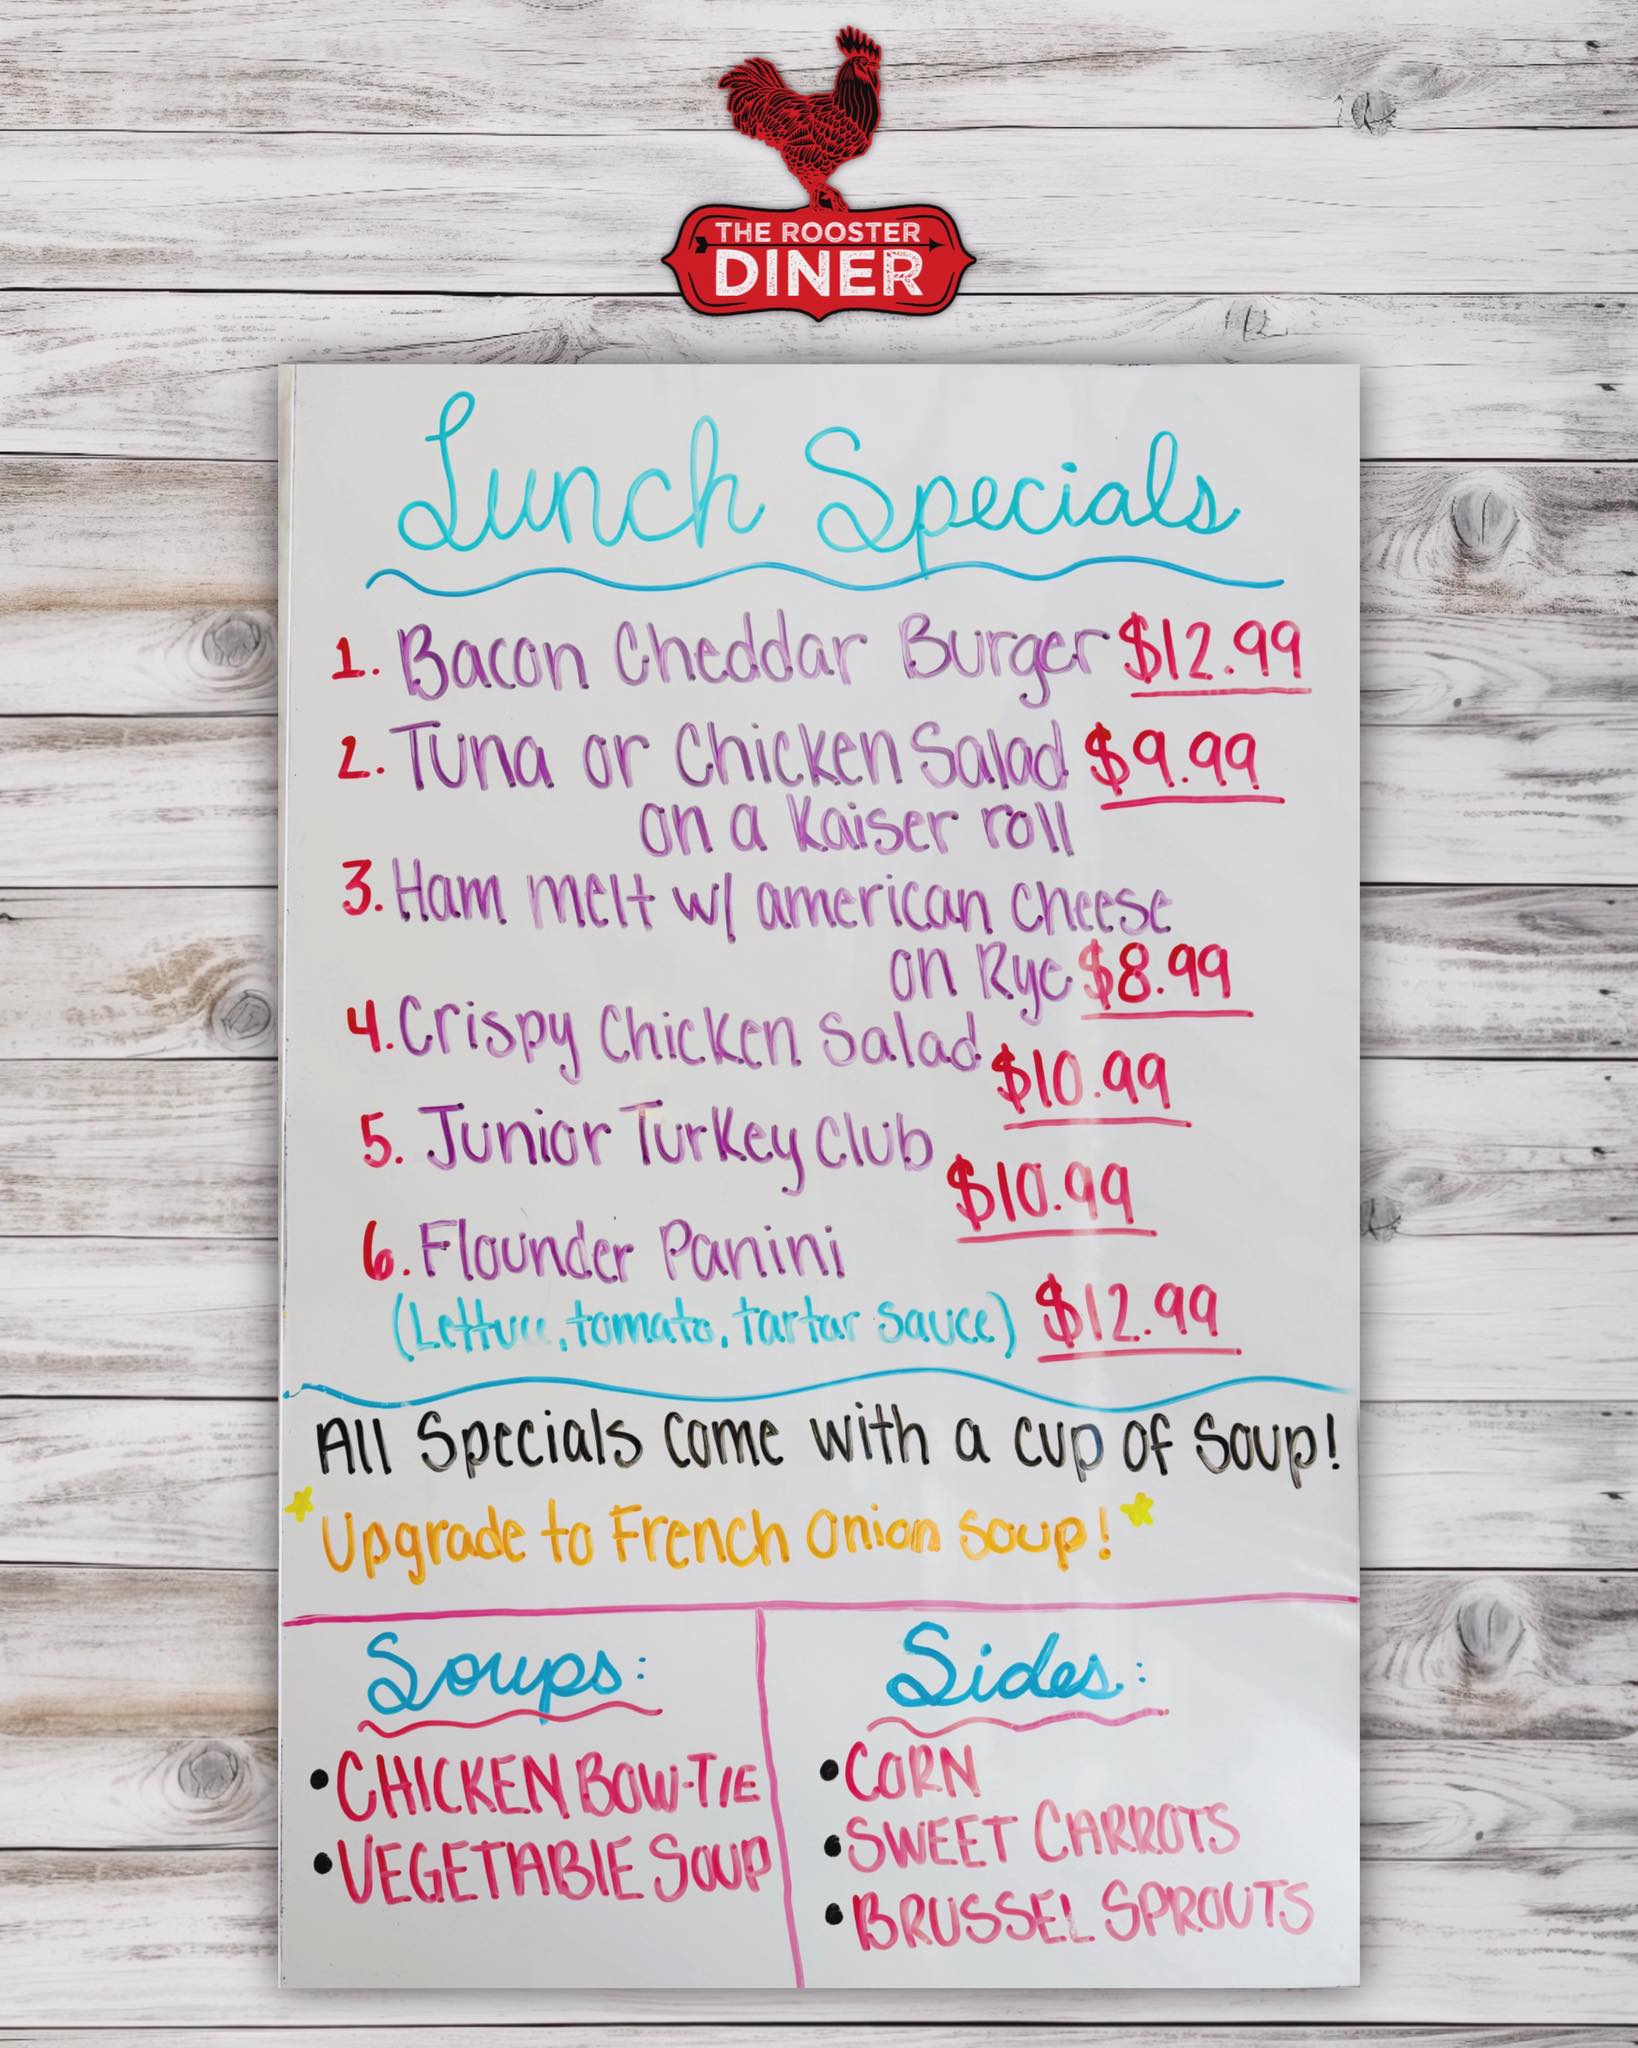 THE ROOSTER
DINER
Lunch Specials
1. Bacon Cheddar Burger $12.99
2. Tuna or Chicken Salad $9.99
on a Kaiser roll
3. Ham melt w/ american cheese
on Rye $8.99
4. Crispy Chicken Salad $10.99
5. Junior Turkey Club $10.99
6. Flounder Panini
(Lettuce, tomato, tartar sauce) $12.99
All Specials come with a cup of Soup!
Upgrade to French Onion Soup!
Soups:
• CHICKEN BOW-TIE
• VEGETABLE SOUP
Sides:
• CORN
• SWEET CARROTS
• BRUSSEL SPROUTS